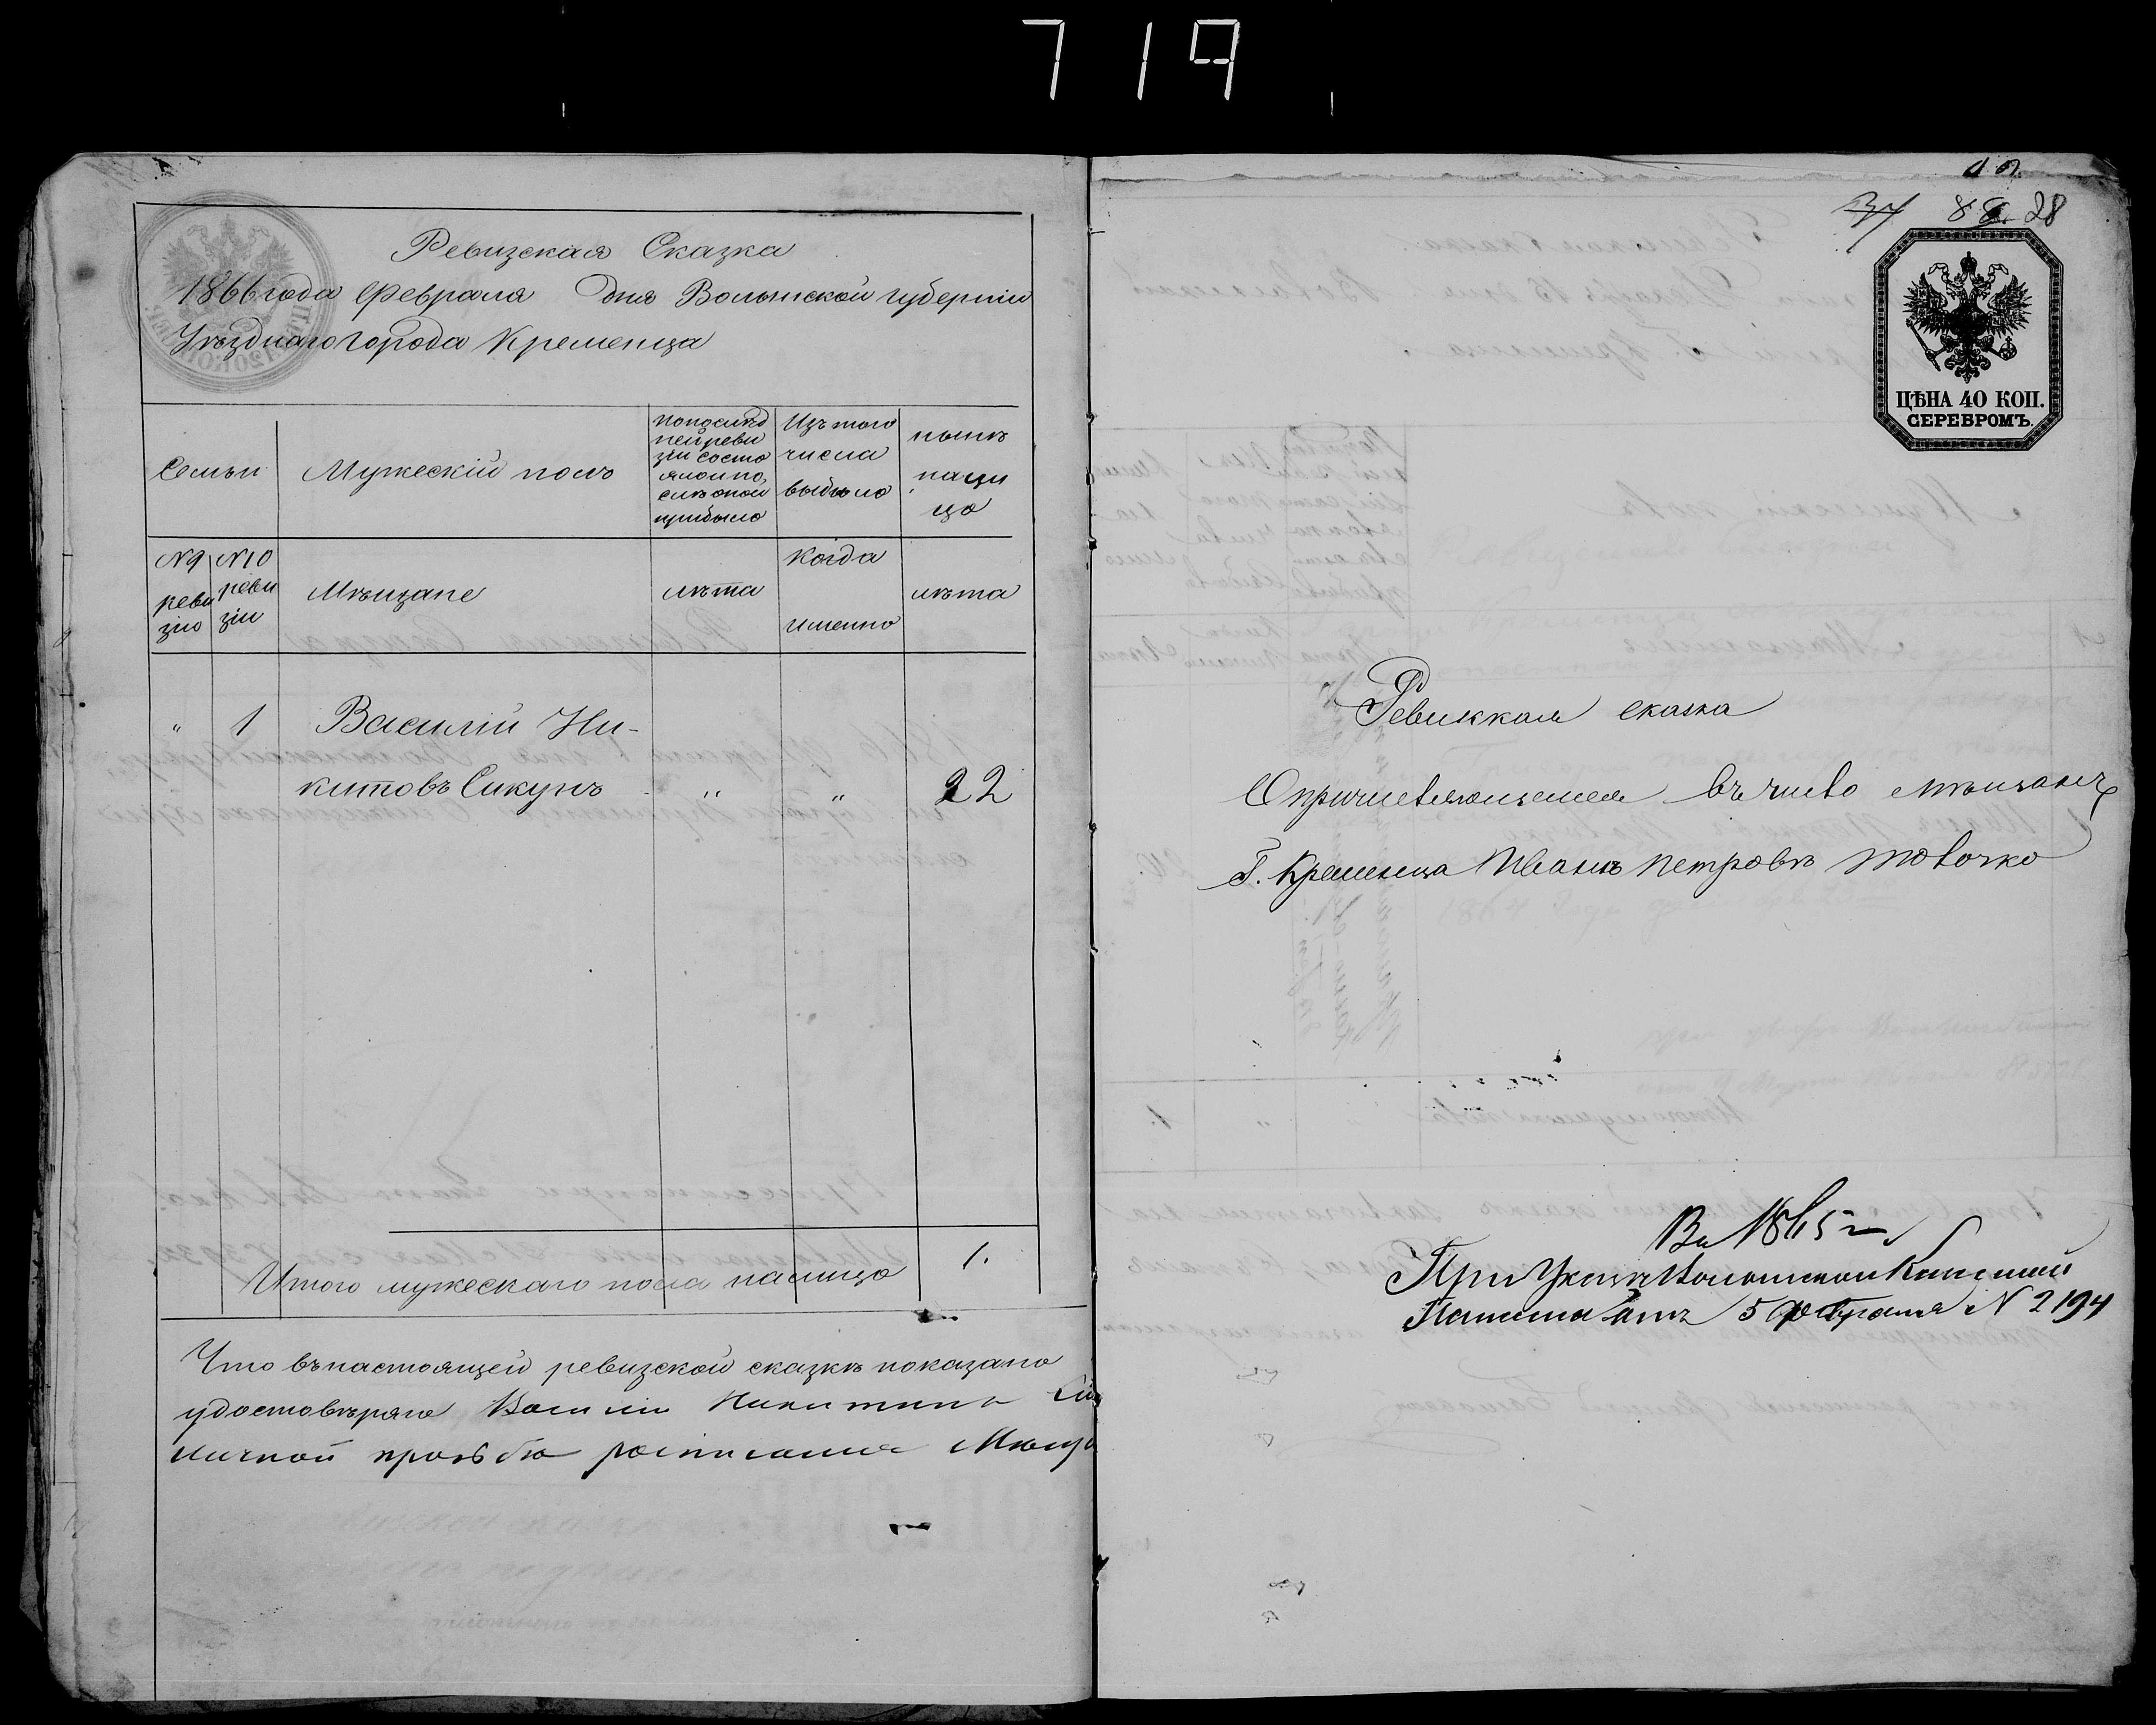 719
Ревизская Сказка
1866 года Февраля дня Волынской губернии
Уѣзднаго города Кременца
Семьи
Мужескій полъ
по послѣд
ней реви
зіи состо
яло и по
слѣ оной
прибыло
Изъ того
числа
выбыло
нынѣ
на ли
цо
№ 9
реви
зіи
№ 10
реви
зіи
Мѣщане
лѣта
когда
именно
лѣта
" 1 Василій Ни-
китовъ Сикунъ " " 22
Итого мужескаго пола налицо 1.
Что въ настоящей ревизской сказкѣ показано
удостовѣряю Василій Никитинъ
личной прозьбѣ росписался Мѣща
37 88. 28
ЦѢНА 40 КОП.
СЕРЕБРОМЪ.
Ревизкая сказка
О причисляющемся въ число мѣщанъ
Г. Кременца Иванѣ Петровѣ
1865
При Указѣ Волынской Казенной
Палаты отъ 5 Февраля № 2194